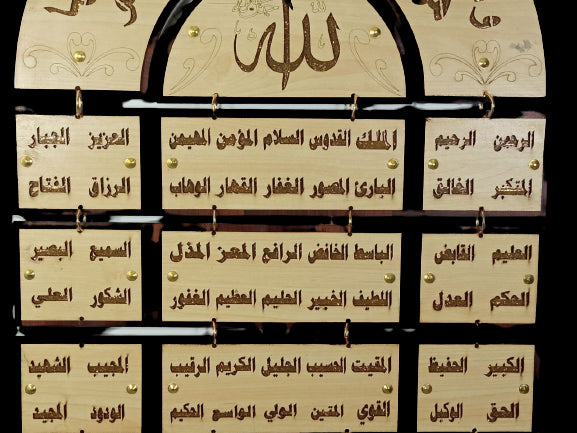 الله
الرحمن الرحيم الملك القدوس السلام المؤمن المهيمن العزيز الجبار
المتكبر الخالق البارئ المصور الغفار القهار الوهاب الرزاق الفتاح
العليم القابض الباسط الخافض الرافع المعز المذل السميع البصير
الحكم العدل اللطيف الخبير الحليم العظيم الغفور الشكور العلي
الكبير الحفيظ المقيت الحسيب الجليل الكريم الرقيب المجيب الشهيد
الحق الوكيل القوي المتين الولي الواسع الحكيم الودود المجيد